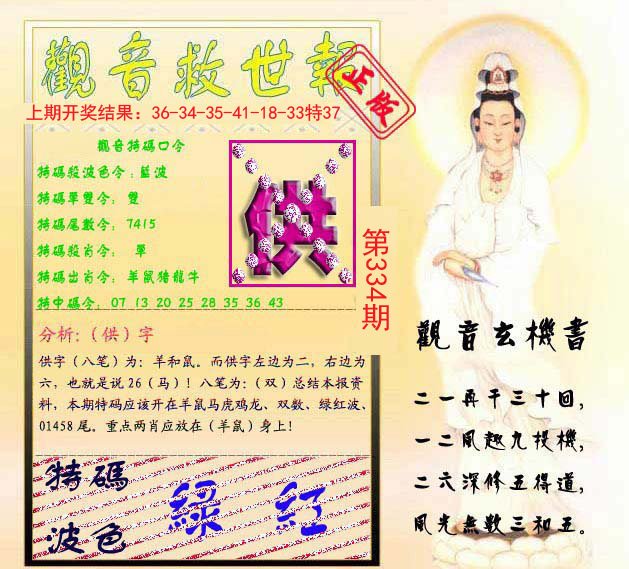 觀音救世報
正版
上期开奖结果：36-34-35-41-18-33特37
觀音特碼口令
特碼殺波色令：藍波
特碼單雙令：雙
特碼尾數令：7415
特碼殺肖令：單
特碼出肖令：羊鼠猪龍牛
特中碼令：07 13 20 25 28 35 36 43
供
第334期
分析:（供）字
供字（八笔）为：羊和鼠。而供字左边为二，右边为
六，也就是说26（马）！八笔为：（双）总结本报资
料，本期特码应该开在羊鼠马虎鸡龙、双数、绿红波、
01458尾。重点两肖应放在（羊鼠）身上!
特碼
波色
綠 紅
觀音玄機書
二一再干三十回，
一二風趣九投機，
二六深修五得道，
風光無數三和五。